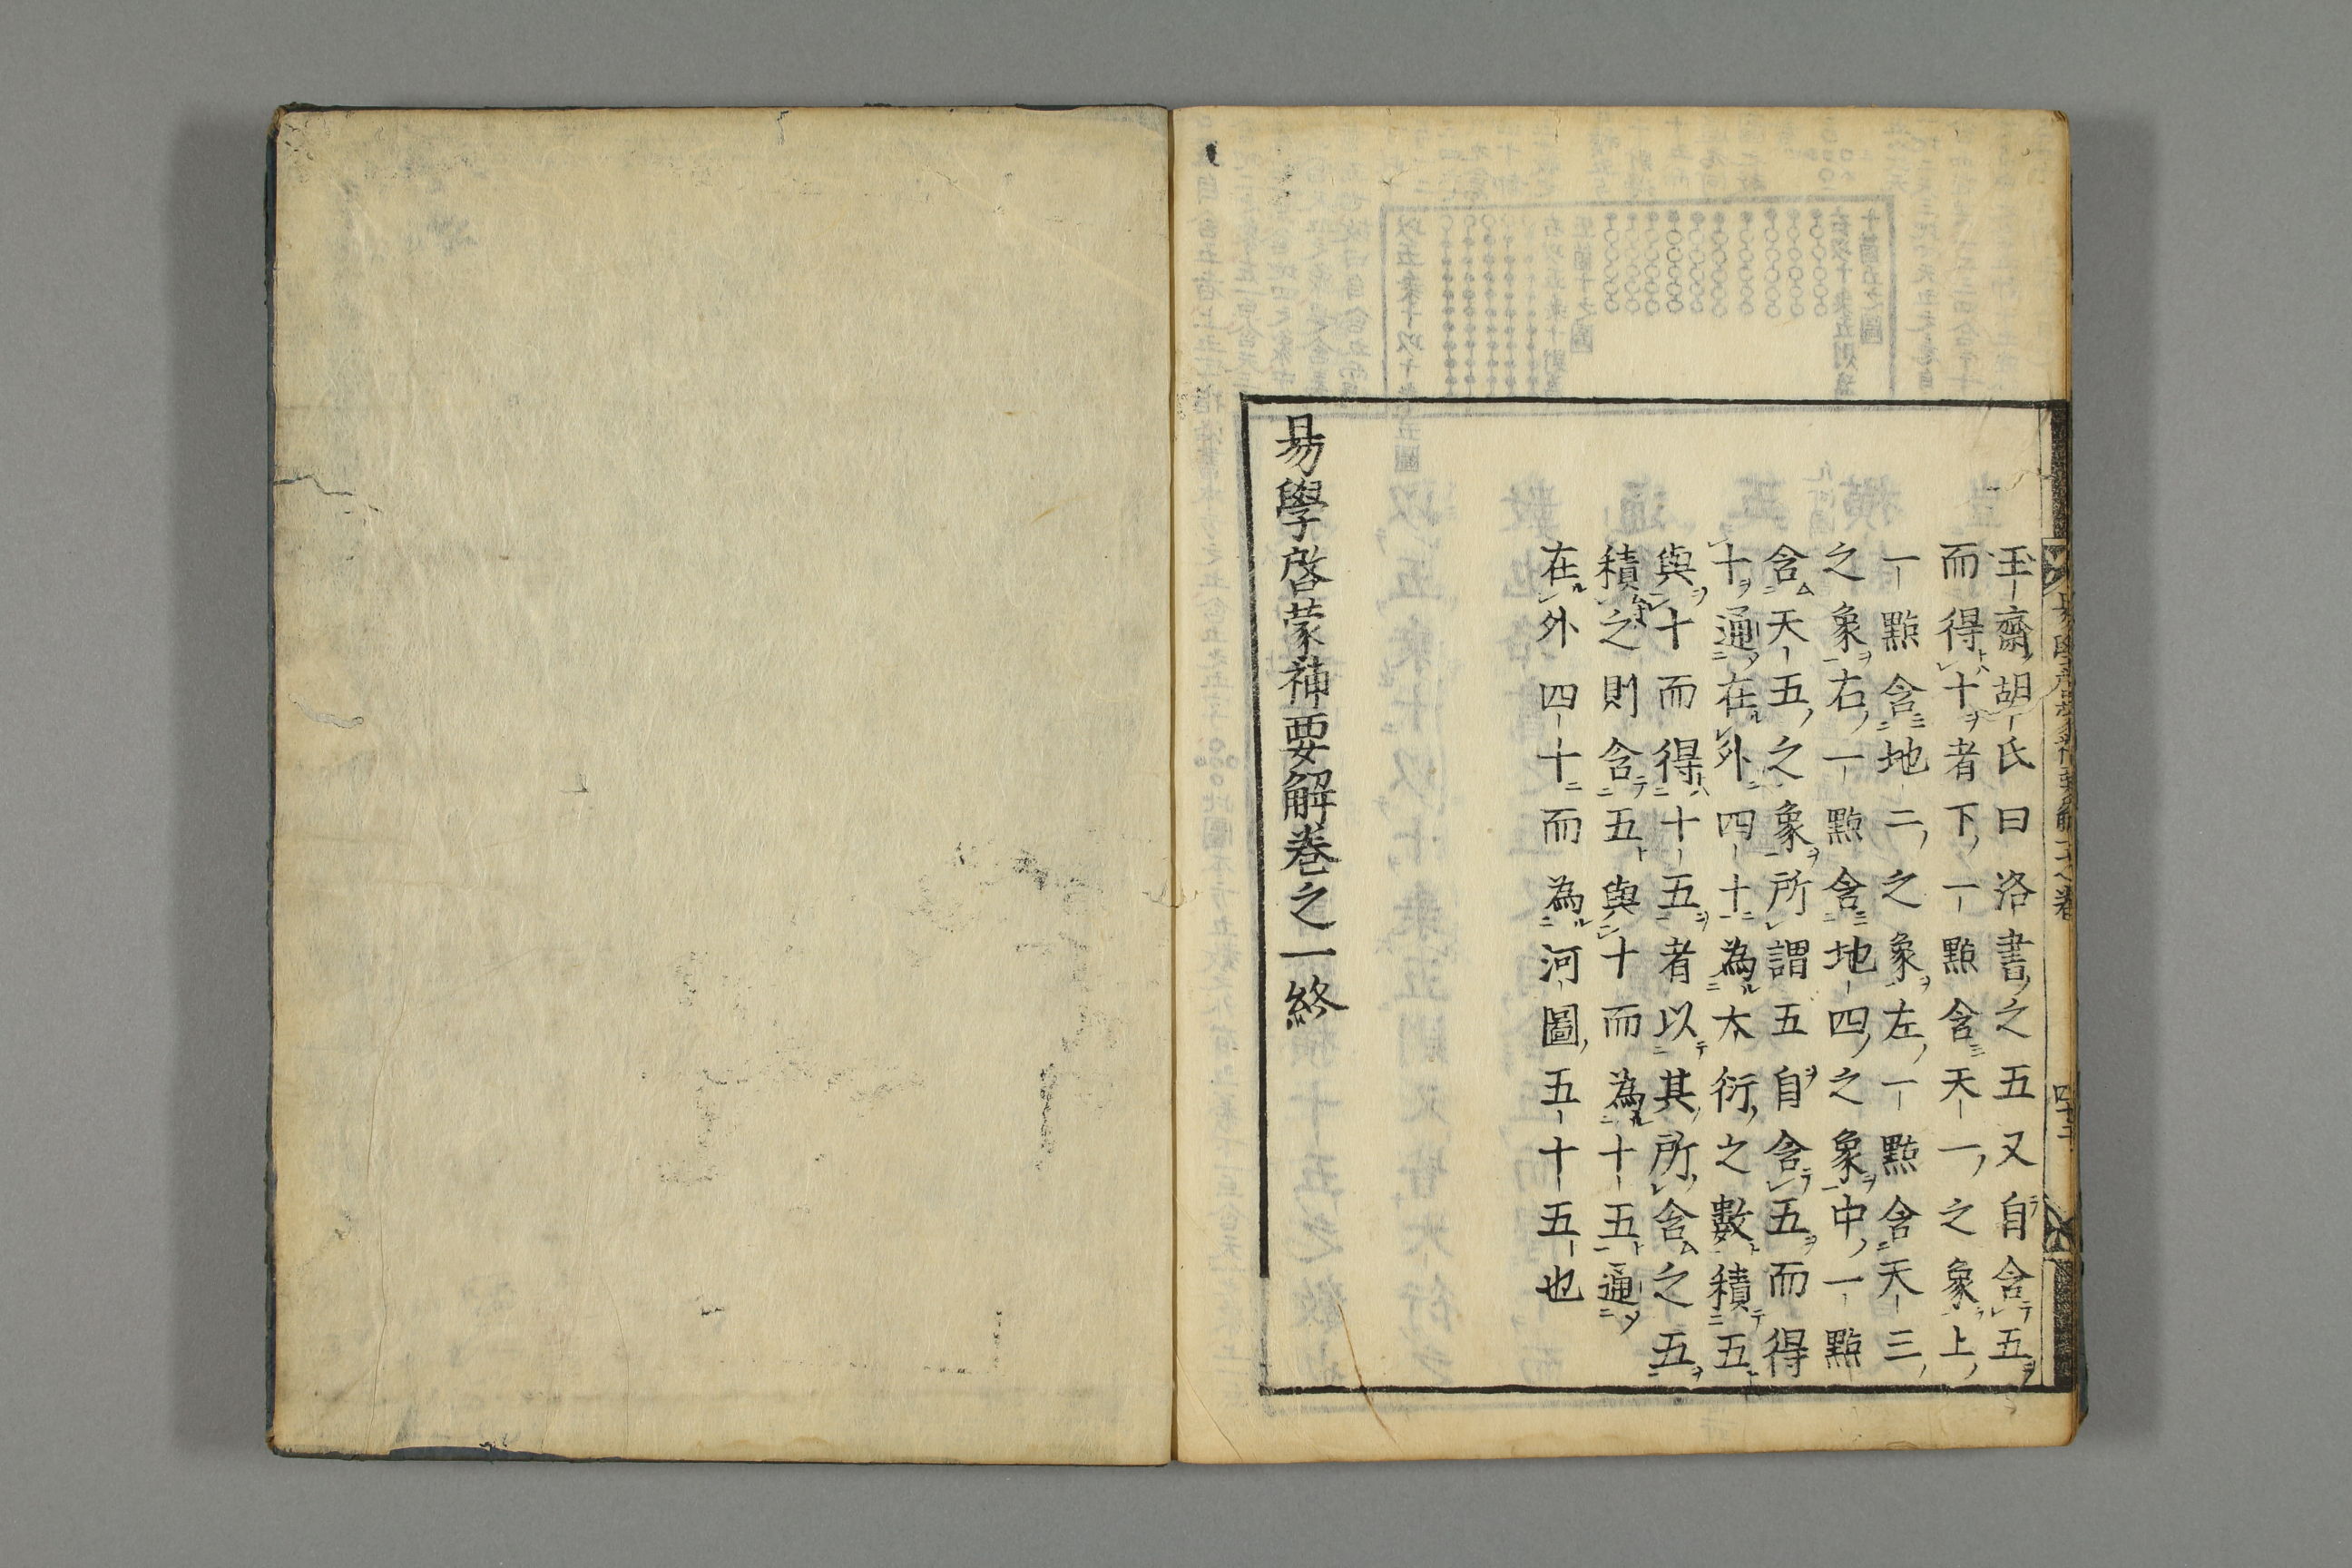 玉齋胡氏曰洛書之五又自含五
而得十者下一點含天一之象上
一點含地二之象左一點含天三
之象右一點含地四之象中一點
含天五之象所謂五自含五而得
十通在外四十為大衍之數積五
與十而得十五者以其所含之五
積之則含五與十而為十五通
在外四十而為河圖五十五也
易學啓蒙神要解卷之一終